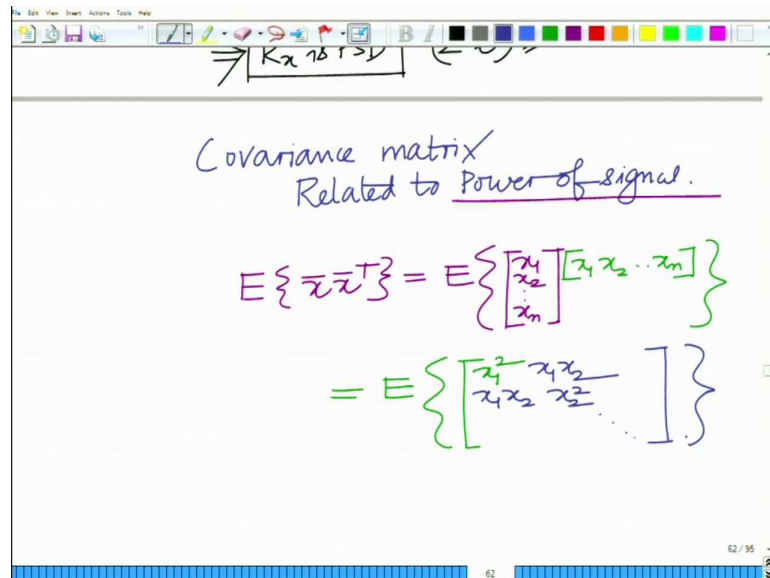 File Edit View Insert Actions Tools Help
B I
Covariance matrix
Related to Power of signal.
E{x̄ x̄ᵀ} = E{[x₁ x₂ ⋮ xₙ] [x₁ x₂ .. xₙ]}
= E{[x₁² x₁x₂
x₁x₂ x₂²
⋱ ]}
62 / 95
62